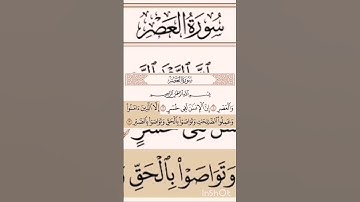 سُورَةُ العَصْرِ
سُورَةُ العَصْرِ
بِسْمِ اللَّهِ الرَّحْمَٰنِ الرَّحِيمِ
وَالْعَصْرِ ۝١ إِنَّ الْإِنسَٰنَ لَفِى خُسْرٍ ۝٢ إِلَّا الَّذِينَ ءَامَنُوا۟
وَعَمِلُوا۟ الصَّٰلِحَٰتِ وَتَوَاصَوْا۟ بِالْحَقِّ وَتَوَاصَوْا۟ بِالصَّبْرِ ۝٣
لَفِى خُسْرٍ
وَتَوَاصَوْا۟ بِالْحَقِّ
InShot